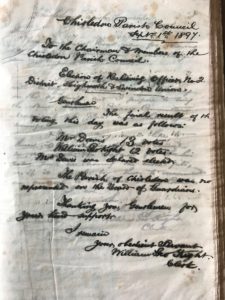 Chisledon Parish Council
Sept 1st 1897.
To the Chairman & Members of the
Chisledon Parish Council.
Election of Relieving Officer No 2
District, Highworth & Swindon Union.
Gentlemen
The final result of the
voting this day, was as follows:
13 votes
William 12 votes
Mr was declared elected.
The Parish of Chisledon was
represented on the Board of Guardians.
Thanking you Gentlemen for
your kind support.
I remain
Your obedient Servant
William Geo
Clerk.